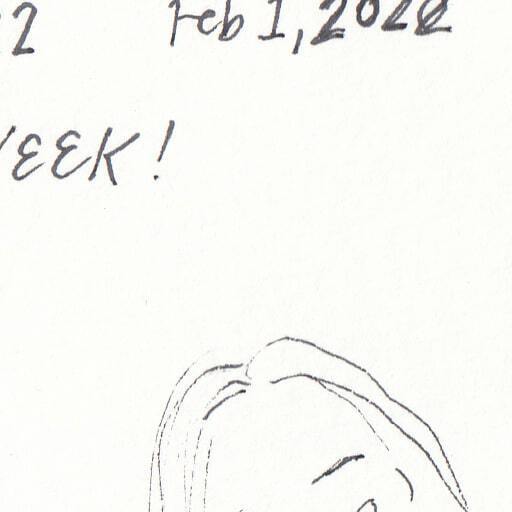 2 Feb 1, 2022
WEEK!